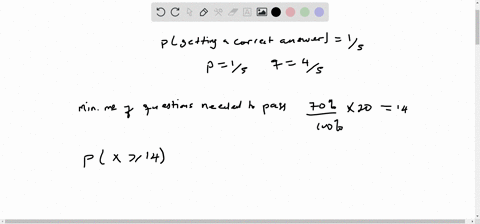 P(getting a correct answer) = 1/5
P = 1/5 q = 4/5
Min. no of questions needed to pass 70%/100% × 20 = 14
P( x ≥ 14)